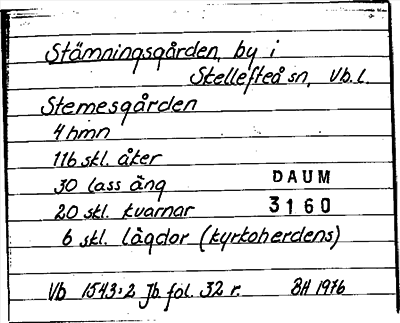 Stämningsgården, by i
Skellefteå sn, Vb.l.
Stemesgården
4 hmn
116 skl. åker
30 lass äng
DAUM
20 skl. kvarnar
3160
6 skl. lågdor (kyrkoherdens)
Vb 1543:2 Jb. fol. 32 r. BH 1976